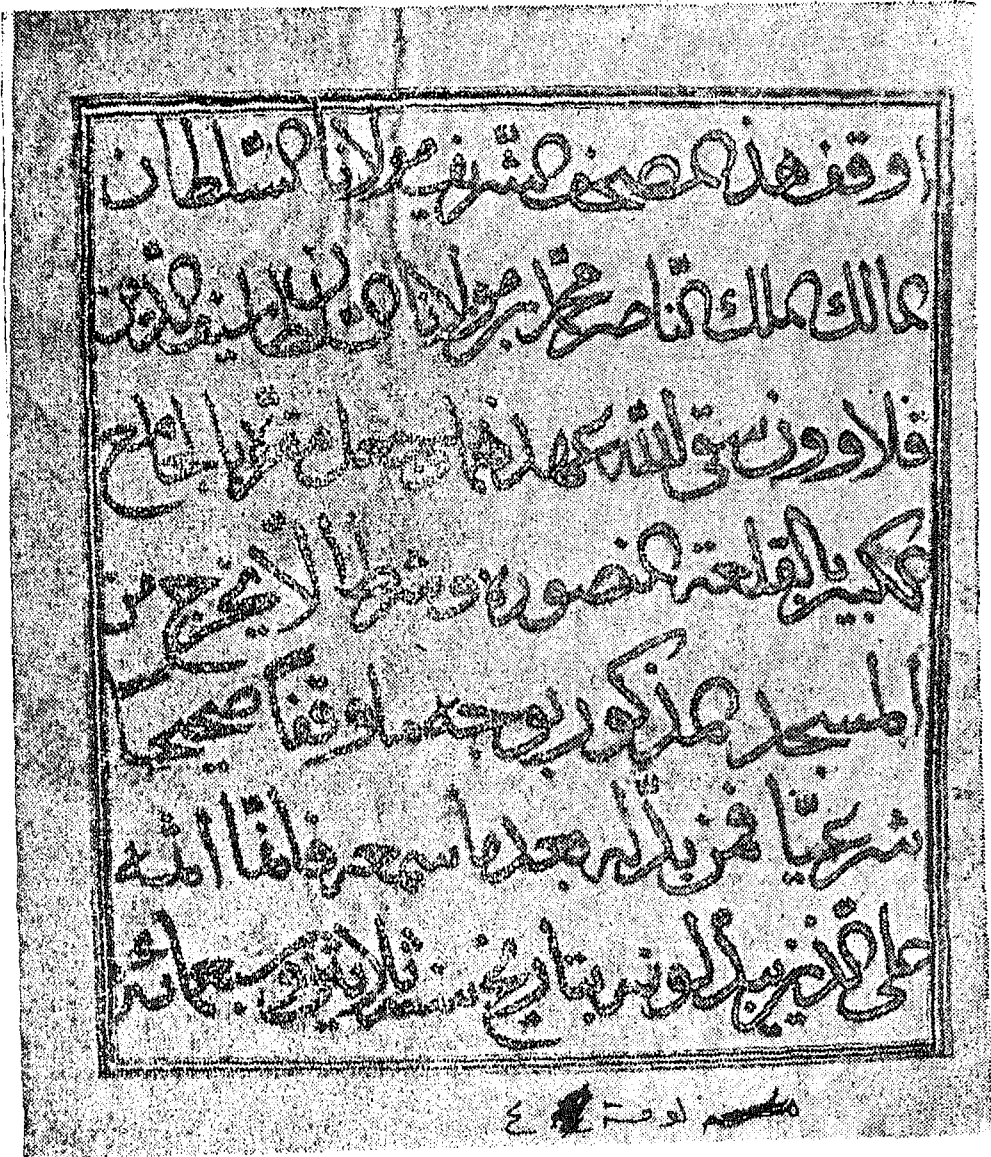 اوقف هذا المصحف الشريف مولانا السلطان
المالك الملك الناصر محمد بن مولانا السلطان الدين
قلاوون سقى الله عهده الجامع
الكبير بالقلعة المنصورة وشرط ان لا يخرج من
المسجد المذكور بوجه ما وقفا صحيحا
شرعيا فمن بدله بعدما سمعه فانما اثمه
على الذين يبدلونه بتاريخ سنة ثلاثين وسبعمائة
لوحة ٤